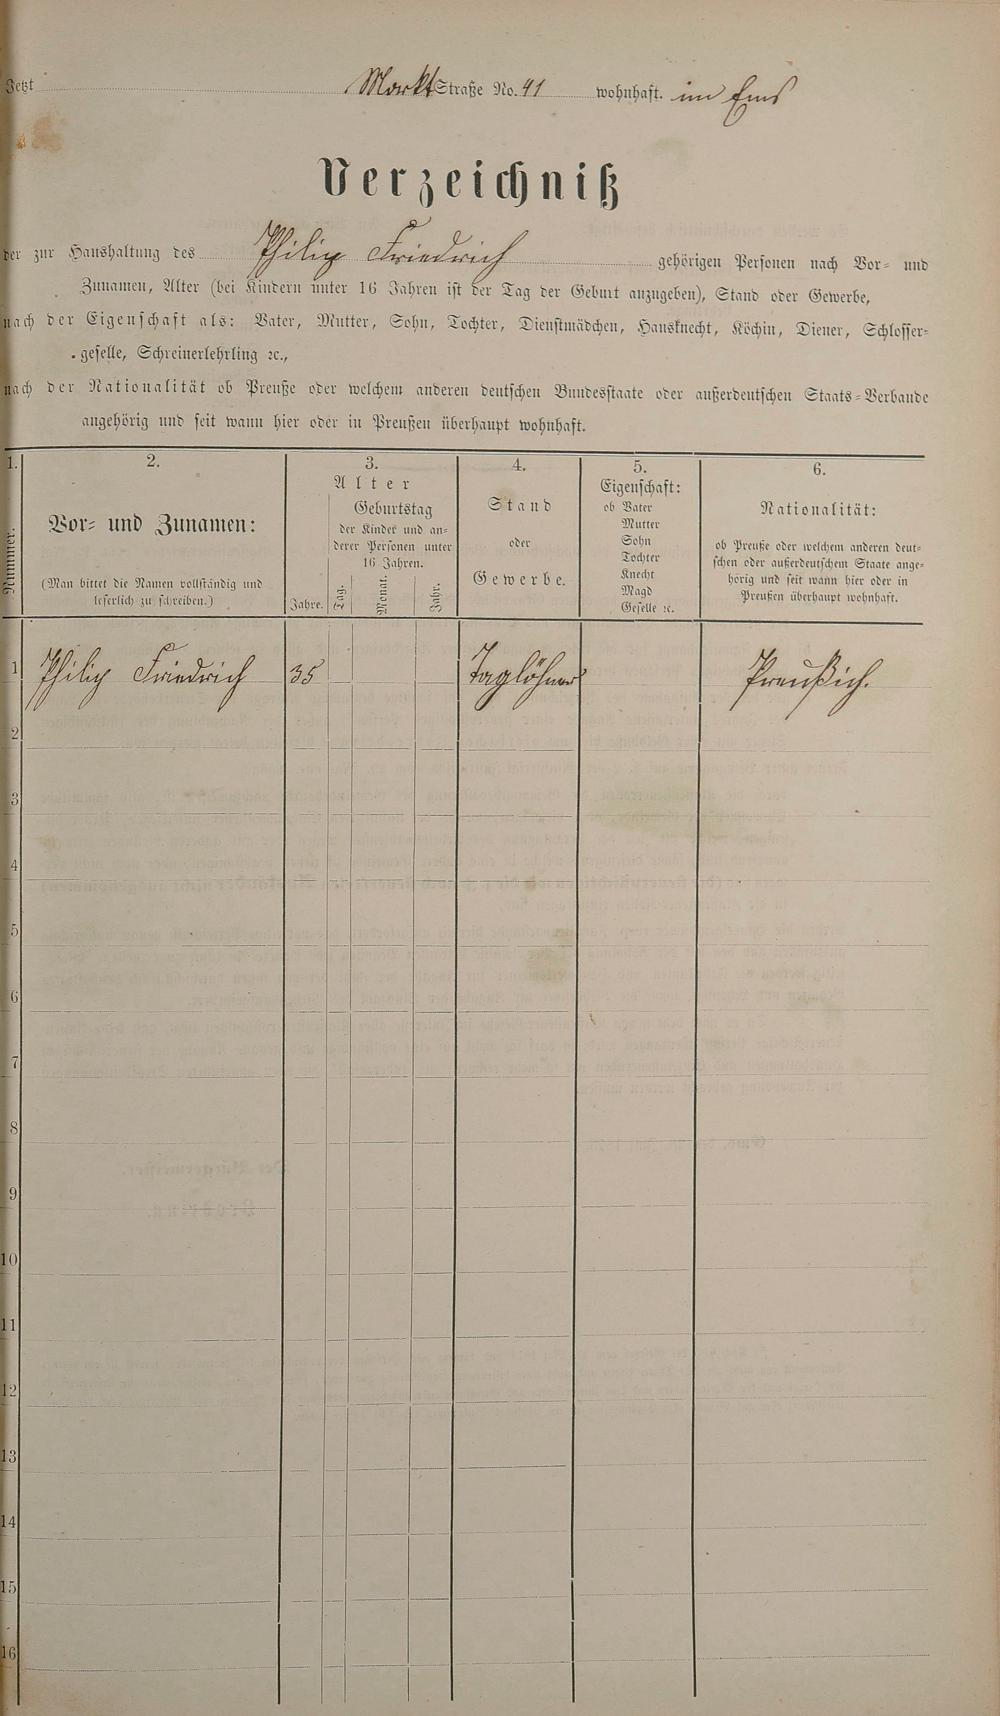 Jetzt Markt Straße No. 41 wohnhaft. im Ems
Verzeichniß
der zur Haushaltung des Philip Friedrich gehörigen Personen nach Vor- und
Zunamen, Alter (bei Kindern unter 16 Jahren ist der Tag der Geburt anzugeben), Stand oder Gewerbe,
nach der Eigenschaft als: Vater, Mutter, Sohn, Tochter, Dienstmädchen, Hausknecht, Köchin, Diener, Schlosser-
geselle, Schreinerlehrling ꝛc.,
nach der Nationalität ob Preuße oder welchem anderen deutschen Bundesstaate oder außerdeutschen Staats-Verbande
angehörig und seit wann hier oder in Preußen überhaupt wohnhaft.
1.
Nummer.
2.
Vor- und Zunamen:
(Man bittet die Namen vollständig und
leserlich zu schreiben.)
3.
Alter
Geburtstag
der Kinder und an-
derer Personen unter
16 Jahren.
Jahre. Tag. Monat. Jahr.
4.
Stand
oder
Gewerbe.
5.
Eigenschaft:
ob Vater
Mutter
Sohn
Tochter
Knecht
Magd
Geselle ꝛc.
6.
Nationalität:
ob Preuße oder welchem anderen deut-
schen oder außerdeutschem Staate ange-
hörig und seit wann hier oder in
Preußen überhaupt wohnhaft.
1 Philip Friedrich 35 Taglöhner Preußich.
2
3
4
5
6
7
8
9
10
11
12
13
14
15
16